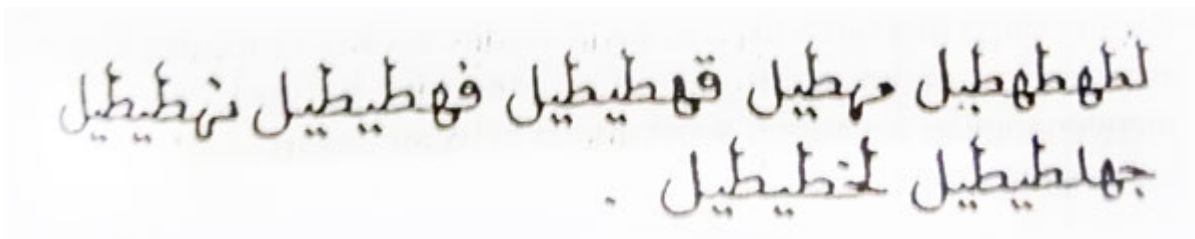 لطهطهطيل مهطيل قهطيطيل فهطيطيل نهطيطيل
جهلطيطيل لخطيطيل .